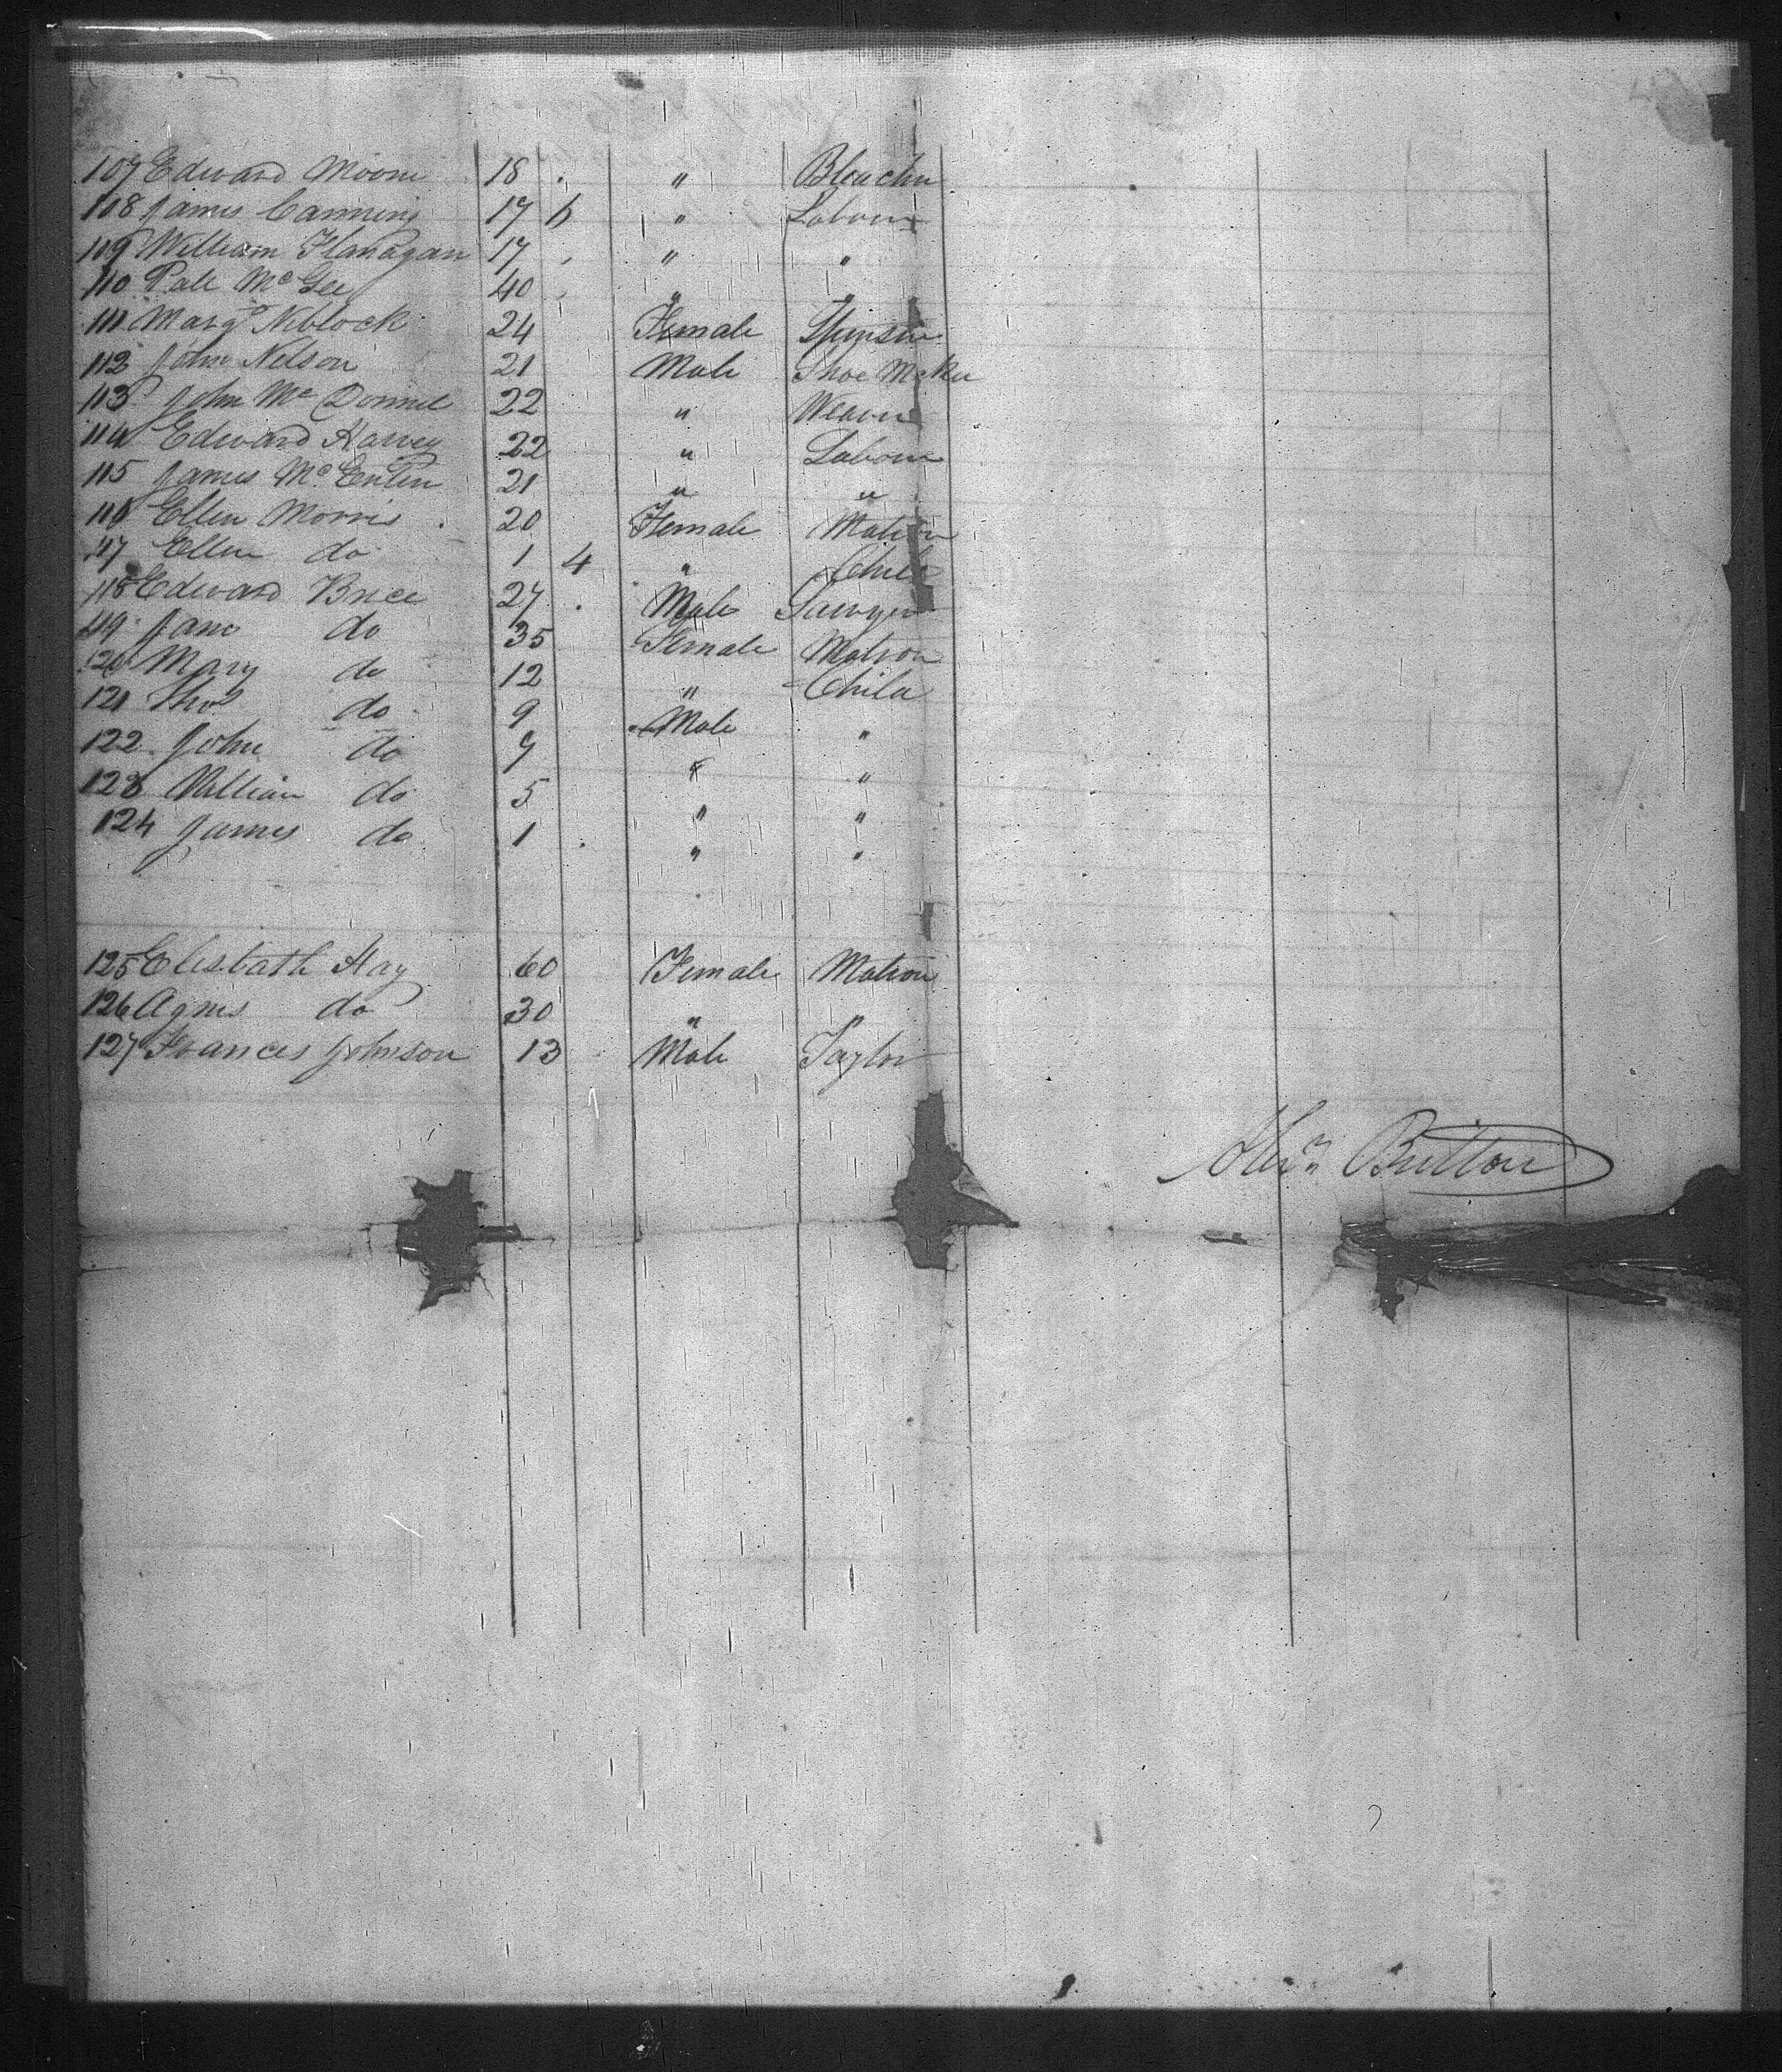 107 Edward Moore 18 " Bleacher
108 James Canning 17 6 " Labour
109 William Flanagan 17 " "
110 Patt McGee 40 " "
111 Margt Niblock 24 Female Spinster
112 John Nelson 21 Male Shoe Maker
113 John Mc Donnel 22 " Weaver
114 Edward Harvey 22 " Labour
115 James 21 " "
116 Ellen Morris 20 Female Matron
117 Ellen do 1 4 " Child
118 Edward Brice 27 Male Sawyer
119 Jane do 35 Female Matron
120 Mary do 12 " Child
121 Thos do 9 Male "
122 John do 7 " "
123 William do 5 " "
124 James do 1 " "
125 Elisbath Hay 60 Female Matron
126 Agnes do 30 " "
127 Frances Johnson 13 Male Taylor
Alexr Britton